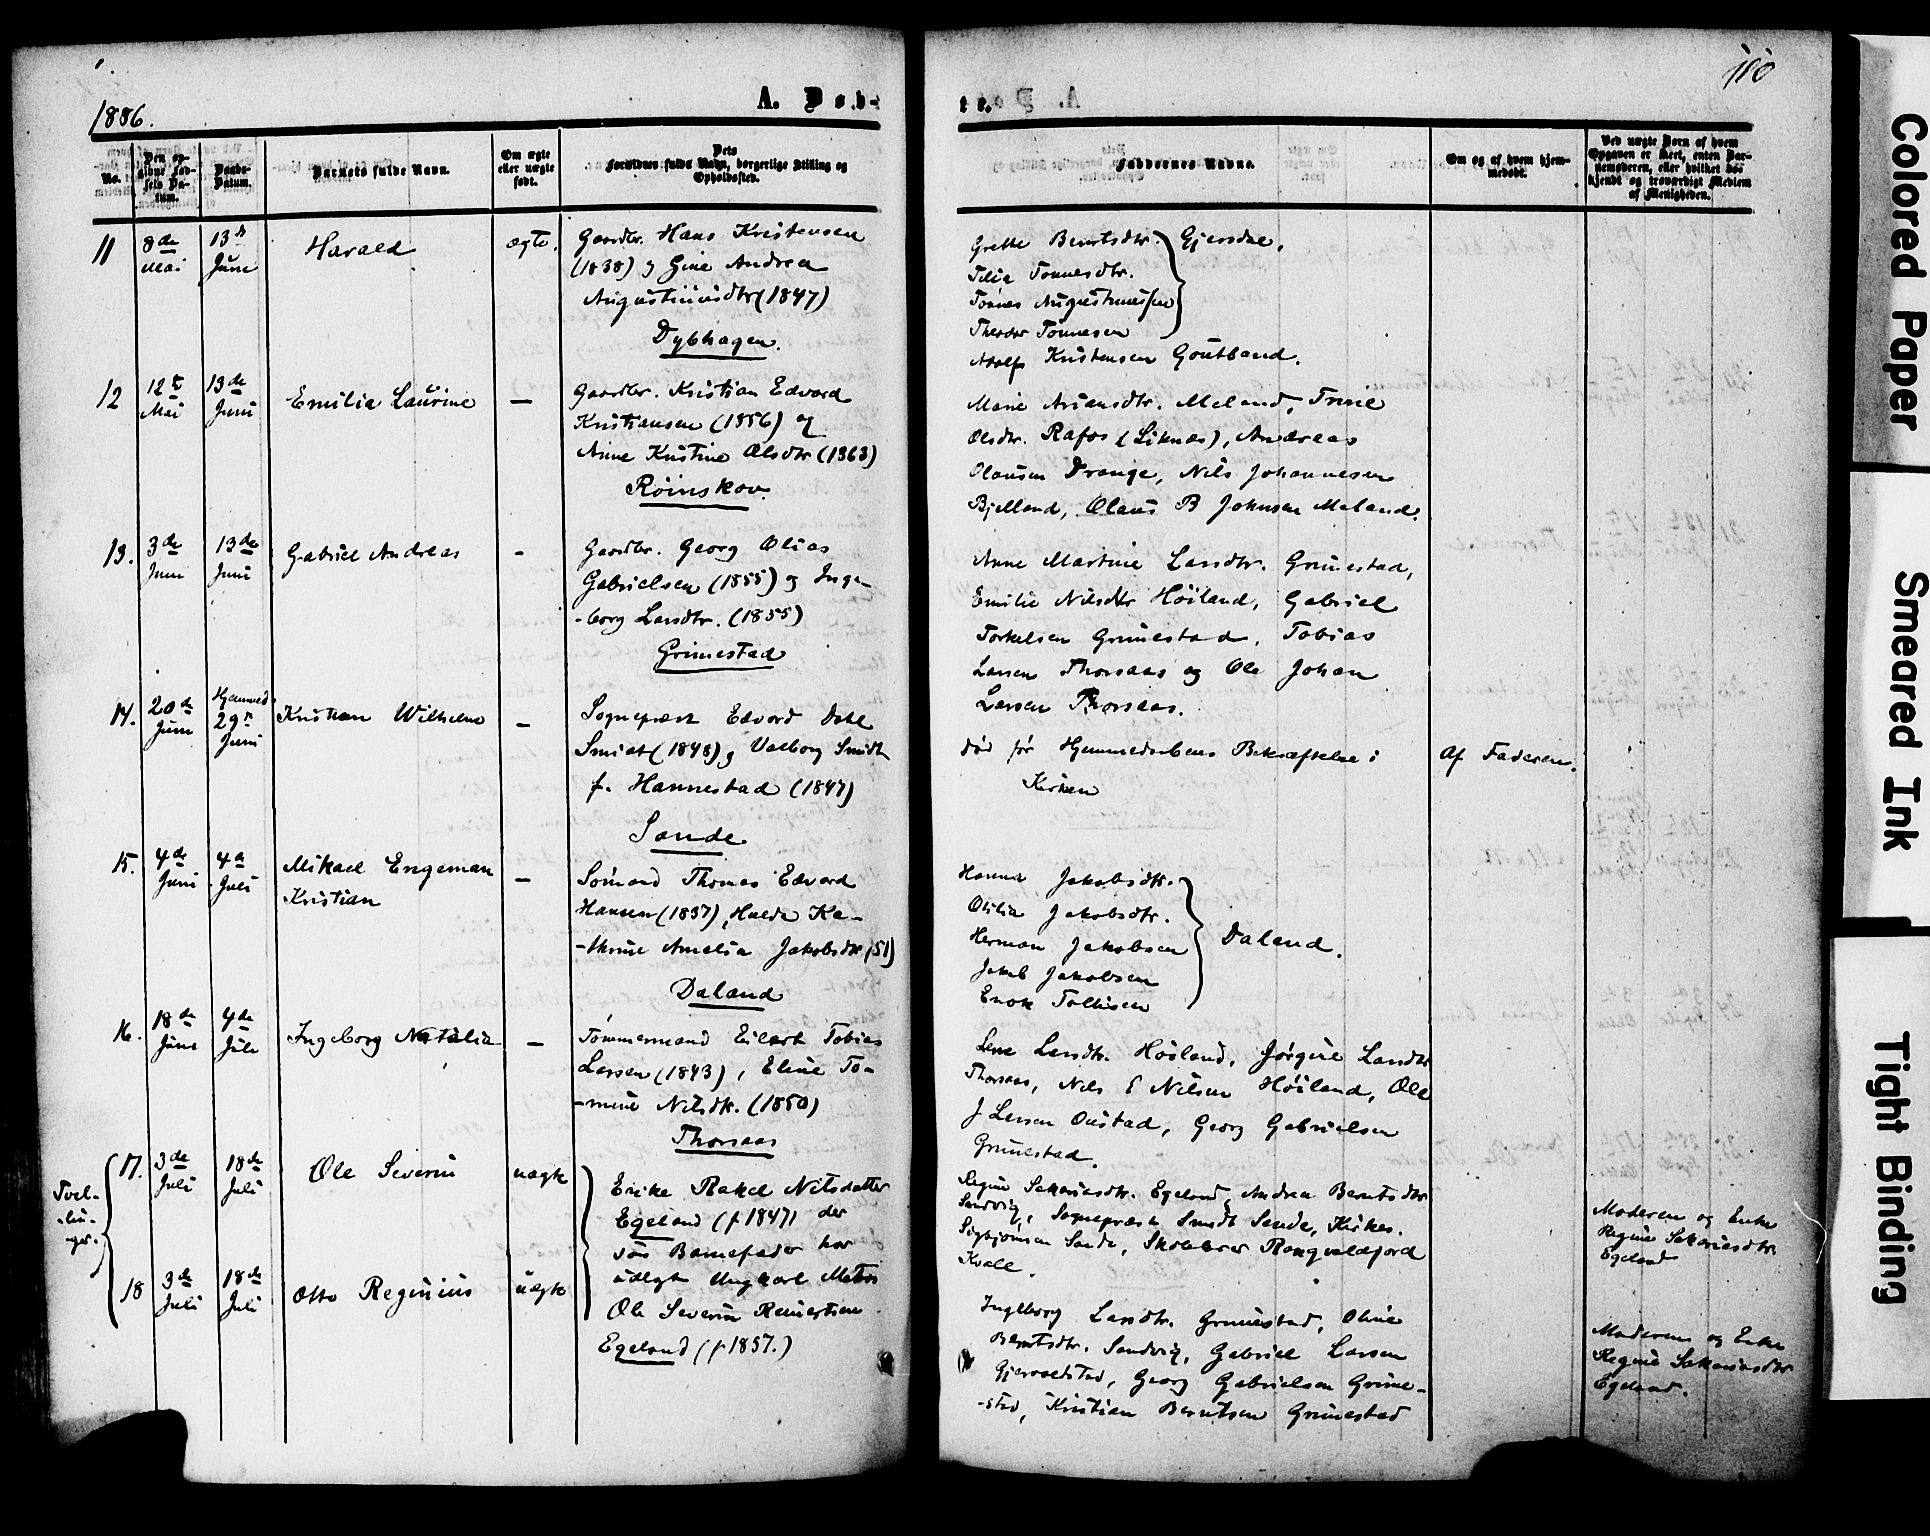 1886.
A. Døb-
te.
110
No.
Den opgivne Fødsels Datum.
Daabs-Datum.
Barnets fulde Navn.
Om ægte eller uægte født.
Dets Forældres fulde Navn, borgerlige Stilling og Opholdssted.
Faddernes Navne.
Om og af hvem hjemmedøbt.
Ved uægte Børn af hvem Opgaven er skeet, enten Barnemoderen, eller hvilket bekjendt og troværdigt Medlem af Menigheden.
11
8de Mai
13 Juni
Harald
ægte.
Gaardbr. Hans Kristensen
(1838) og Gine Andrea
Augustinusdtr (1847)
Dybhagen.
Grethe Berntsdtr. Gjersdal.
Tilia Tonnesdtr.
Tönnes Augustinussen
Theodor Tönnesen
Adolf Kristensen
12
12te Mai
13de Juni
Emilia Laurine
—
Gaardbr. Kristian Edvard
Kristiansen (1856) og
Anne Kristine Olsdtr (1863)
Röinskov.
Marie Meland, Trine
Olsdtr. Rafos (Liknæs), Andreas
Olausen Drange, Nils Johannesen
Bjelland, Olaus B Johnsen Meland.
13.
3de Juni
13de Juni
Gabriel Andreas
-
Gaardbr. Georg Olias
Gabrielsen (1855) og Inge-
-borg Larsdtr. (1855)
Grimestad
Anne Martine Larsdtr. Grimestad,
Emilie Nilsdtr Höiland, Gabriel
Torkelsen Grimestad, Tobias
Larsen Thorsaas og Ole Johan
Larsen Thorsaas.
14.
20de Juni
Hjemmed. 29 Juni
Kristian Wilhelm
—
Sognepræst Edvard Dahl
Smidt (1848) og Valborg Smidt
f. Hannestad (1847)
Sande
död för Hjemmedaabens Bekræftelse i
Kirken
Af Faderen.
15.
4de Juni
4de Juli
Mikael Engeman
Kristian
—
Sömand Thomas Edvard
Hansen (1837), Hulda Ka-
-thrine Amalia Jakobsdtr (51)
Daland
Hanna Jakobsdtr.
Otilia Jakobsdtr.
Herman Jakobsen
Jakob Jakobsen
Enok Tollisen
Daland.
16.
18de Juni
4de Juli
Ingeborg Natalia
—
Tömmermand Eilert Tobias
Larsen (1843), Eline To-
-mine Nilsdtr. (1850)
Thorsaas
Lene Larsdtr. Höiland, Jörgine Larsdtr
Thorsaas, Nils E Nilsen Höiland, Ole
J Larsen Oustad, Georg Gabrielsen
Grimestad.
Tvil-
-lin-
-ger.
17.
3de Juli
18de Juli
Ole Severin
uægte
Enke Rakel Nilsdatter
Egeland (f 1847) der
som Barnefader har
udlagt Ungkarl
Ole Severin Reinertsen
Egeland (f 1857.)
Regine Sakariasdtr. Egeland, Andrea Berntsdtr
Sandvig, Sognepræst Smidt Sande, Kirkes.
Sigbjörnsen Sande, Skolelærer Rongvaldfjord
Kvale.
Moderen og Enke
Regine Sakariasdtr.
Egeland
18
3de Juli
18de Juli
Otto Reginius
uægte
Ingeborg Larsdtr. Grimestad, Oline
Berntsdtr. Sandvig, Gabriel Larsen
Georg Gabrielsen Grime-
-stad, Kristian Berntsen Grimestad
Moderen og Enke
Regine Sakariasdtr
Egeland.
Colored Paper
Smeared Ink
Tight Binding